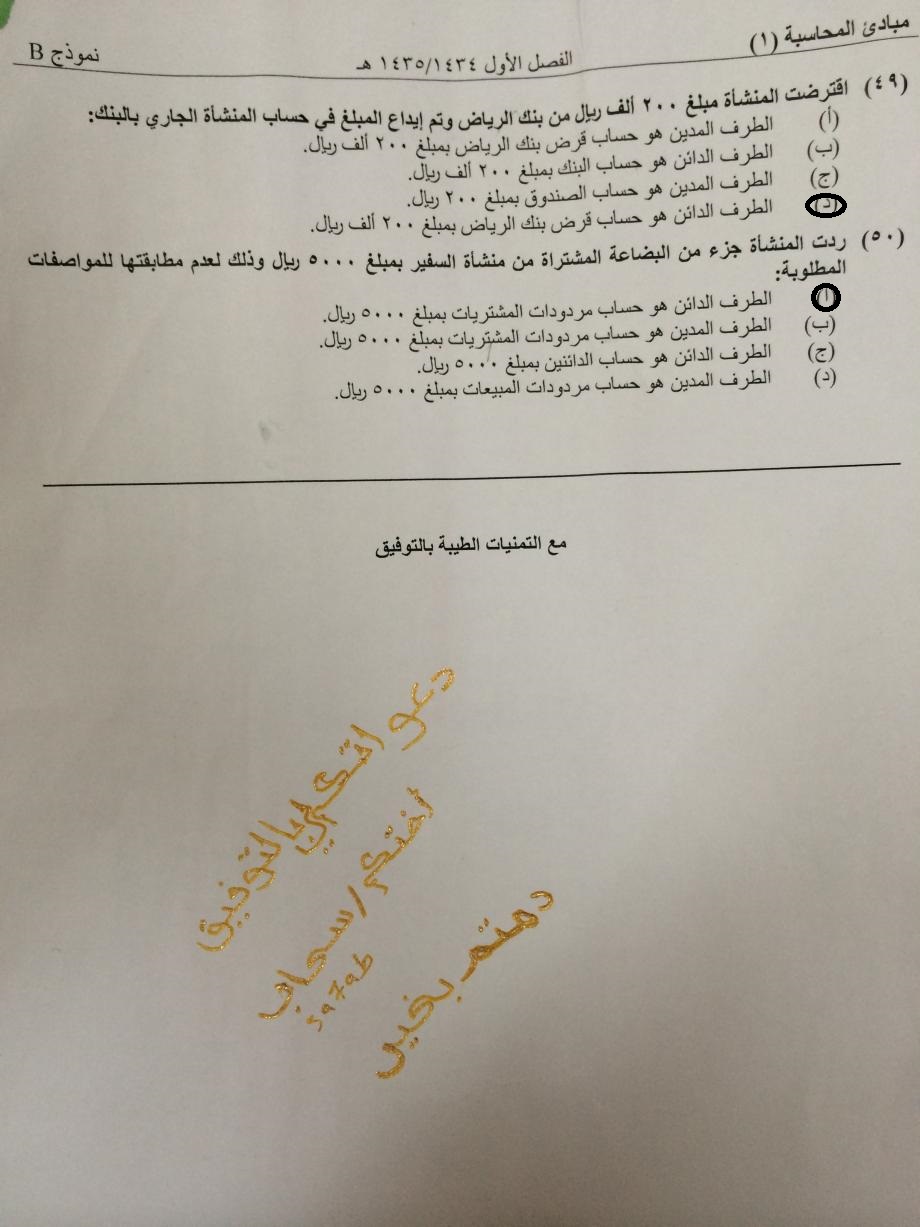 مبادئ المحاسبة (١) الفصل الأول ١٤٣٥/١٤٣٤ هـ نموذج B
(٤٩) اقترضت المنشأة مبلغ ٢٠٠ ألف ريال من بنك الرياض وتم إيداع المبلغ في حساب المنشأة الجاري بالبنك:
(أ) الطرف المدين هو حساب قرض بنك الرياض بمبلغ ٢٠٠ ألف ريال.
(ب) الطرف الدائن هو حساب البنك بمبلغ ٢٠٠ ألف ريال.
(ج) الطرف المدين هو حساب الصندوق بمبلغ ٢٠٠ ريال.
(د) الطرف الدائن هو حساب قرض بنك الرياض بمبلغ ٢٠٠ ألف ريال.
(٥٠) ردت المنشأة جزء من البضاعة المشتراة من منشأة السفير بمبلغ ٥٠٠٠ ريال وذلك لعدم مطابقتها للمواصفات
المطلوبة:
(أ) الطرف الدائن هو حساب مردودات المشتريات بمبلغ ٥٠٠٠ ريال.
(ب) الطرف المدين هو حساب مردودات المشتريات بمبلغ ٥٠٠٠ ريال.
(ج) الطرف الدائن هو حساب الدائنين بمبلغ ٥٠٠٠ ريال.
(د) الطرف المدين هو حساب مردودات المبيعات بمبلغ ٥٠٠٠ ريال.
مع التمنيات الطيبة بالتوفيق
دعواتكم لي بالتوفيق
اختكم/سحاب
دمتم بخير